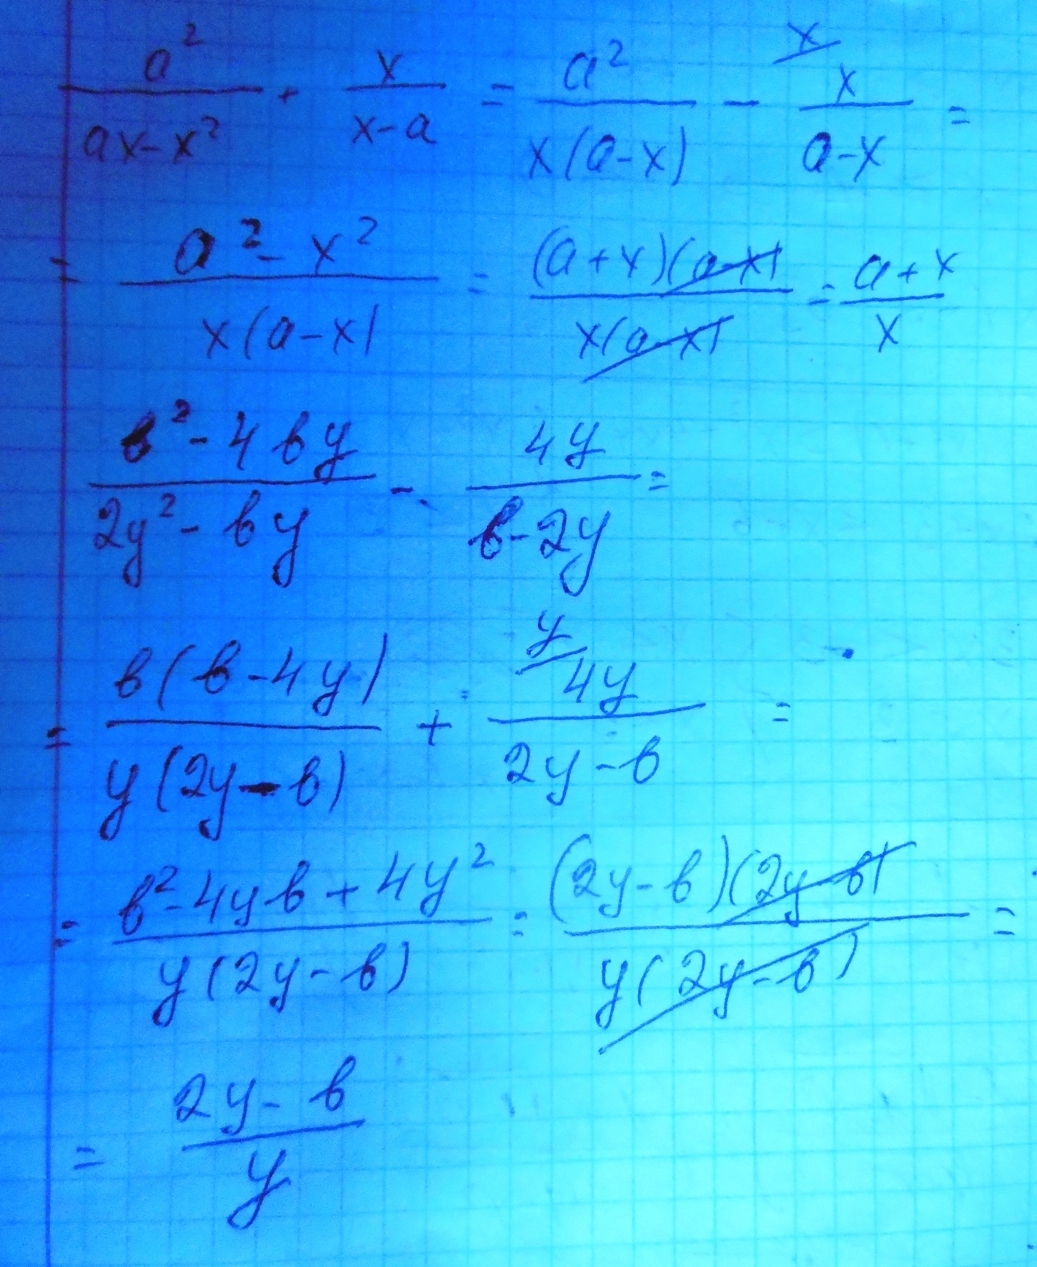 a²/(ax-x²) + x/(x-a) = a²/(x(a-x)) - x/(a-x) \x =
= (a²-x²)/(x(a-x)) = (a+x)(a-x)/(x(a-x)) = (a+x)/x
(в²-4вy)/(2y²-вy) - 4y/(в-2y) =
= в(в-4y)/(y(2y-в)) + 4y/(2y-в) \y =
= (в²-4yв+4y²)/(y(2y-в)) = (2y-в)(2y-в)/(y(2y-в)) =
= (2y-в)/y